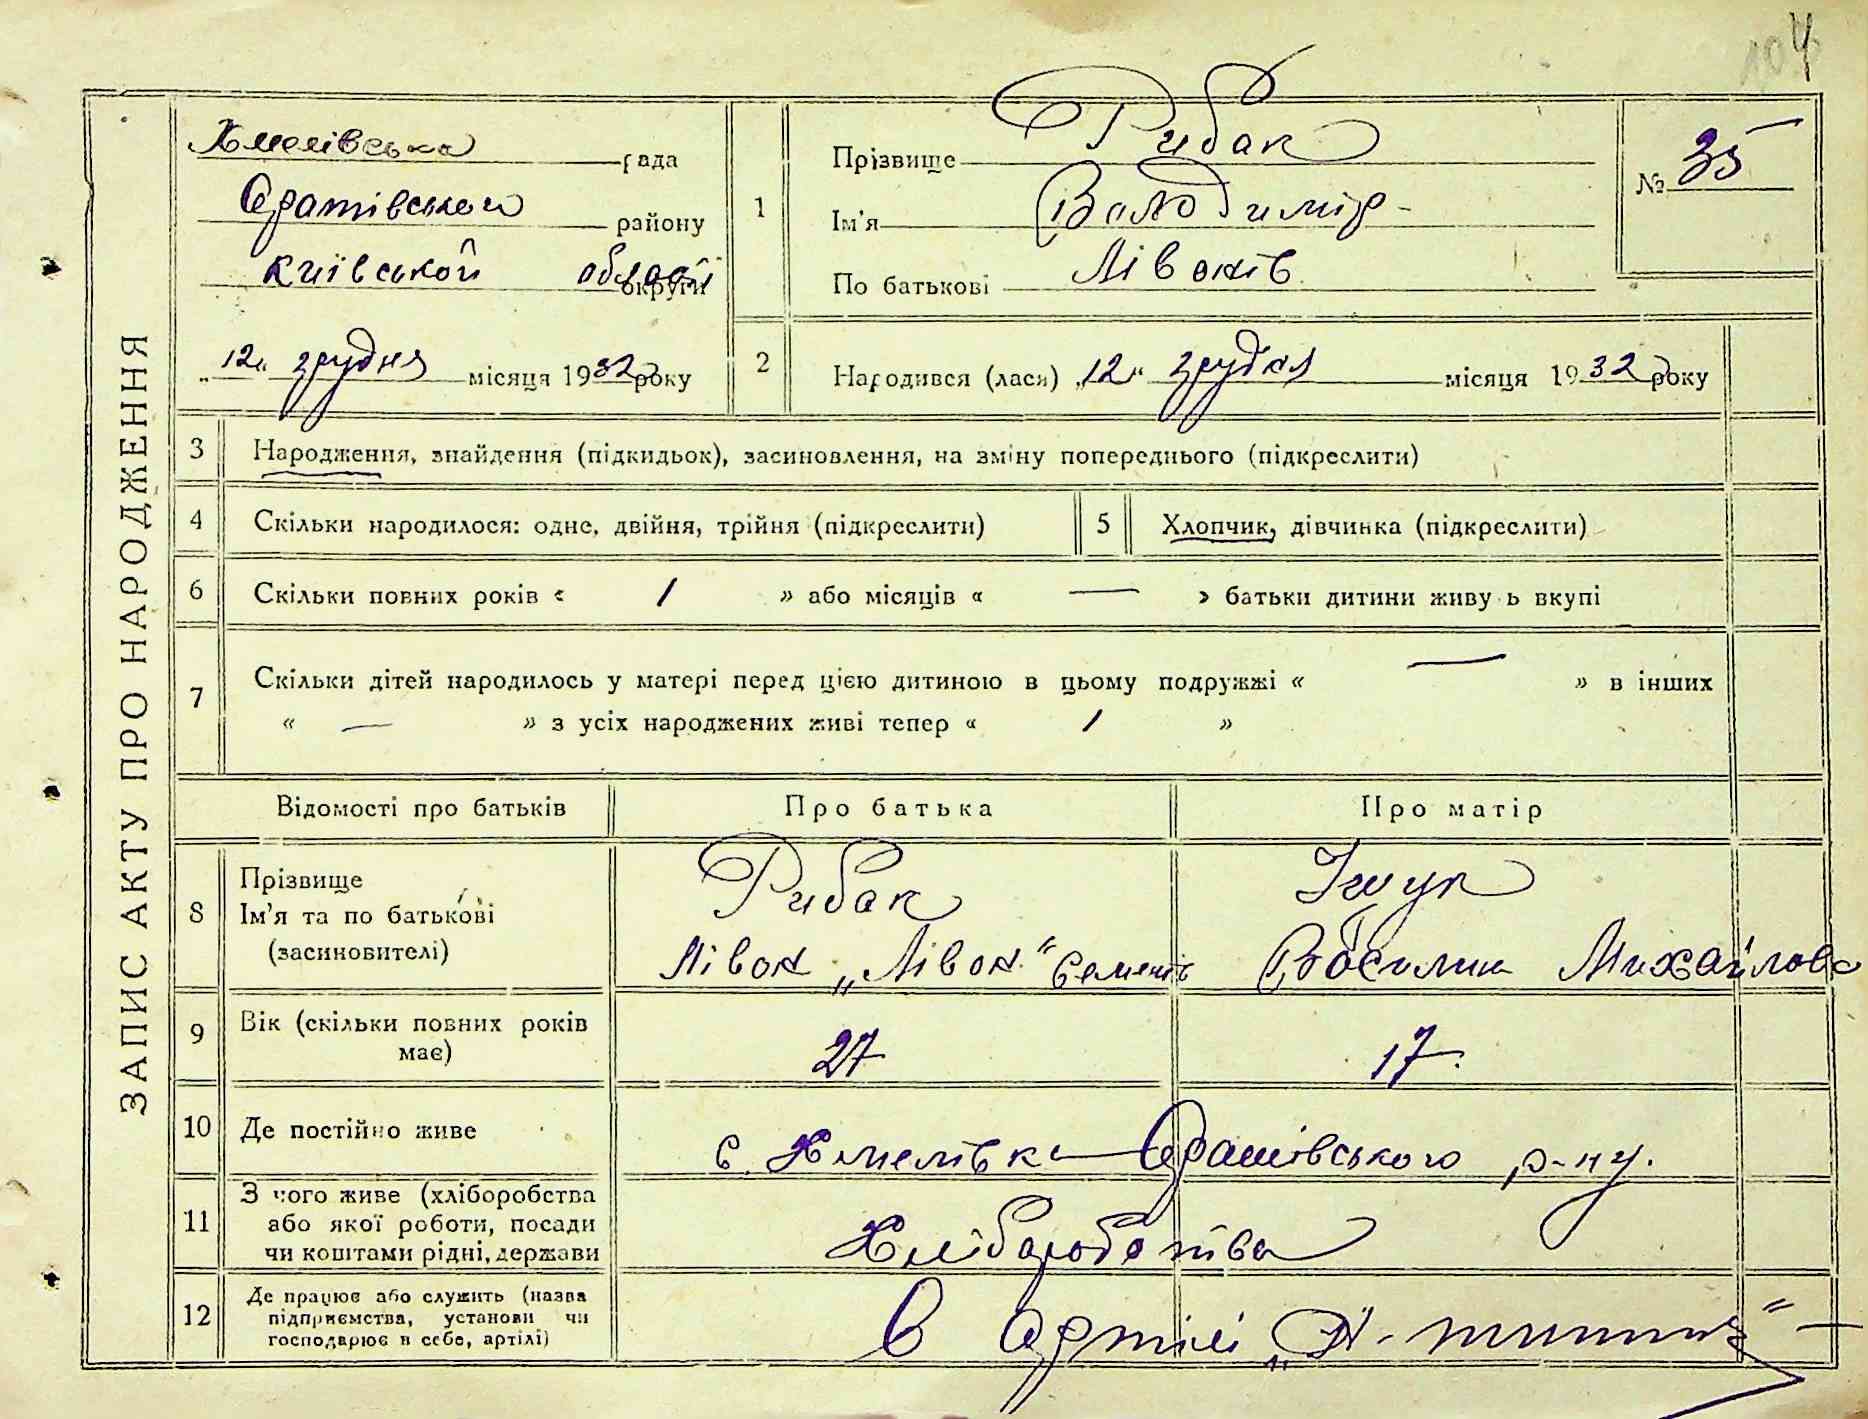 104
ЗАПИС АКТУ ПРО НАРОДЖЕННЯ
Хмелівська рада
Оратівського району
Київської області округи
„12“ грудня місяця 1932 року
1
Прізвище Рибак
Ім'я Володимір
По батькові Лівонів
№ 35
2
Народився (лася) „12“ грудня місяця 1932 року
3 Народження, знайдення (підкидьок), засиновлення, на зміну попереднього (підкреслити)
4 Скільки народилося: одне, двійня, трійня (підкреслити)
5 Хлопчик, дівчинка (підкреслити)
6 Скільки повних років « 1 » або місяців « — » батьки дитини живуть вкупі
7 Скільки дітей народилось у матері перед цією дитиною в цьому подружжі « — » в інших
« — » з усіх народжених живі тепер « 1 »
Відомості про батьків Про батька Про матір
8 Прізвище
Ім'я та по батькові
(засиновителі)
Рибак
Лівон „Лівон“ Семенів
Іщук
Василина Михайлова
9 Вік (скільки повних років
має)
27 17.
10 Де постійно живе с. Хмелівка Оратівського р-ну.
11 З чого живе (хліборобства
або якої роботи, посади
чи коштами рідні, держави
Хліборобства
12 Де працює або служить (назва
підприємства, установи чи
господарює в себе, артілі)
В Артілі